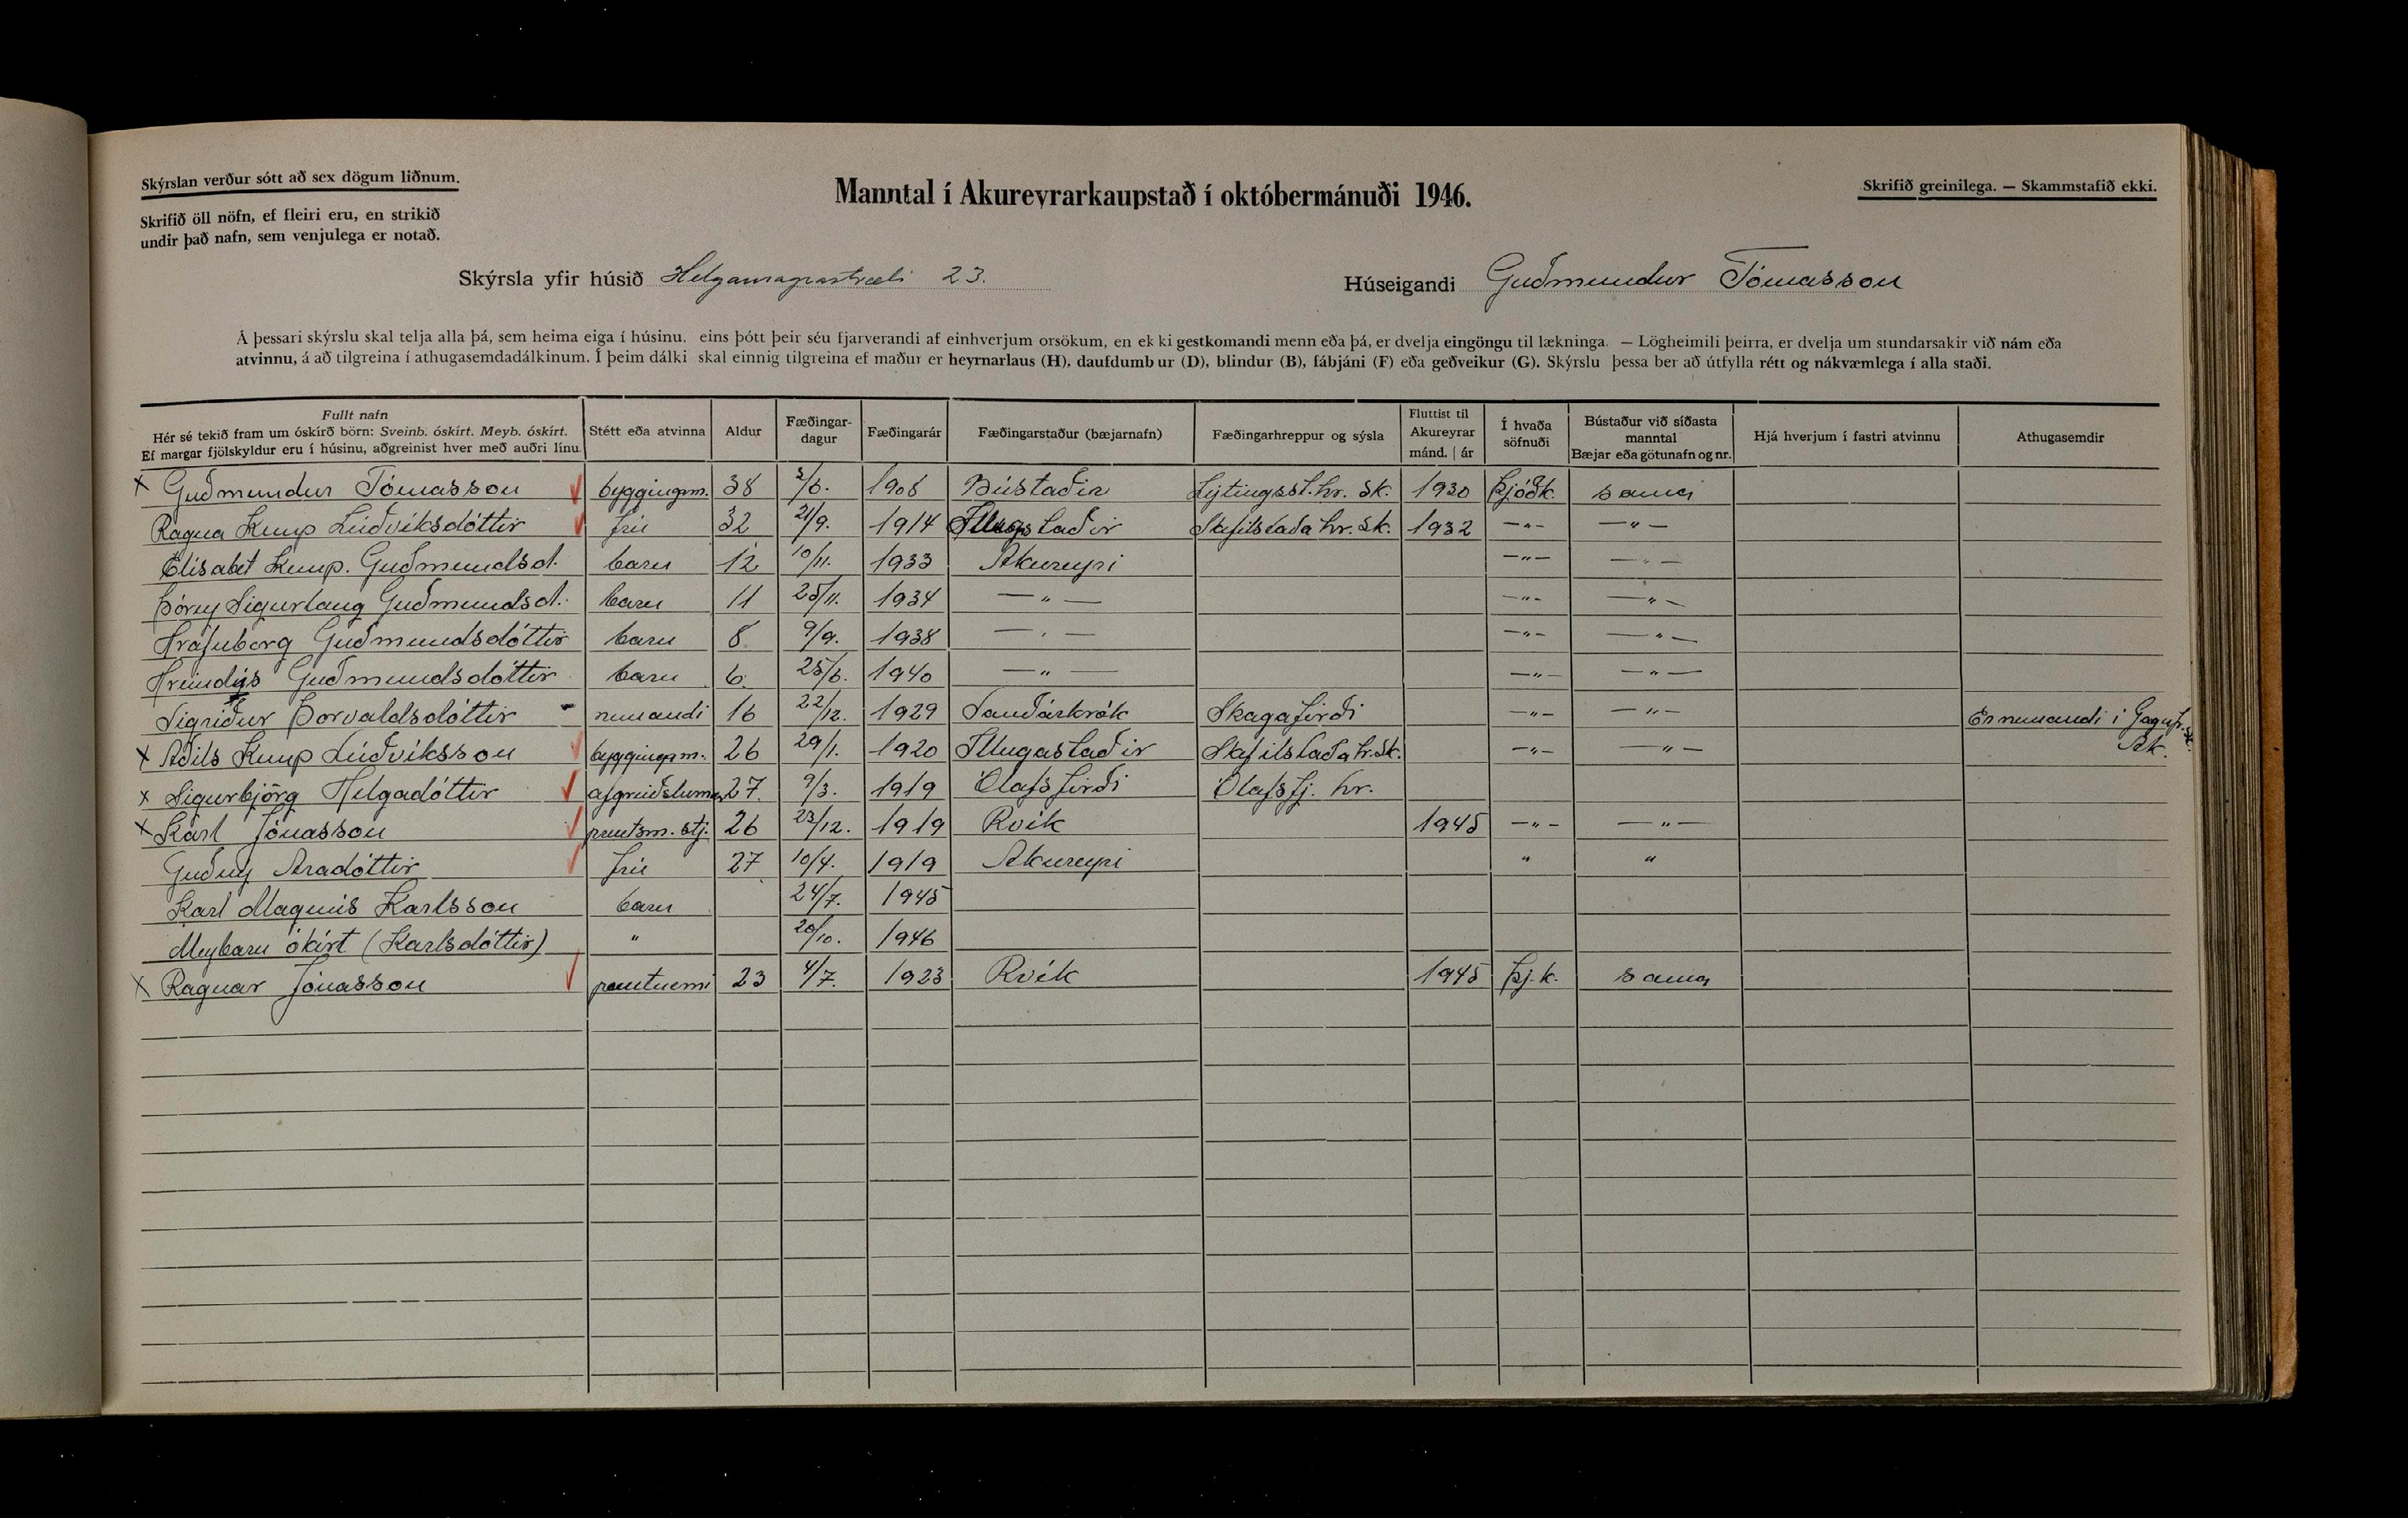 Skýrslan verður sótt að sex dögum liðnum.
Manntal í Akureyrarkaupstað í októbermánuði 1946.
Skrifið greinilega. — Skammstafið ekki.
Skrifið öll nöfn, ef fleiri eru, en strikið
undir það nafn, sem venjulega er notað.
Skýrsla yfir húsið Helgamagrastræti 23.
Húseigandi Guðmundur Tómasson
Á þessari skýrslu skal telja alla þá, sem heima eiga í húsinu, eins þótt þeir séu fjarverandi af einhverjum orsökum, en ekki gestkomandi menn eða þá, er dvelja eingöngu til lækninga. — Lögheimili þeirra, er dvelja um stundarsakir við nám eða
atvinnu, á að tilgreina í athugasemdadálkinum. Í þeim dálki skal einnig tilgreina ef maður er heyrnarlaus (H), daufdumbur (D), blindur (B), fábjáni (F) eða geðveikur (G). Skýrslu þessa ber að útfylla rétt og nákvæmlega í alla staði.
Fullt nafn
Hér sé tekið fram um óskírð börn: Sveinb. óskírt. Meyb. óskírt.
Ef margar fjölskyldur eru í húsinu, aðgreinist hver með auðri línu.
Stétt eða atvinna
Aldur
Fæðingar-
dagur
Fæðingarár
Fæðingarstaður (bæjarnafn)
Fæðingarhreppur og sýsla
Fluttist til
Akureyrar
mánd. | ár
Í hvaða
söfnuði
Bústaður við síðasta
manntal
Bæjar eða götunafn og nr.
Hjá hverjum í fastri atvinnu
Athugasemdir
x Guðmundur Tómasson byggingam. 38 1908 Bústaðir Lýtingsst.hr. Sk. 1930 Þjóðk. sama
Ragna Kemp Lúðvíksdóttir frú 32 21/9. 1914 Illugastaðir Skefilstaða hr. Sk. 1932 —"— —"—
Elísabet Kemp. Guðmundsd. barn 12 10/11. 1933 Akureyri —"— —"—
Þórey Sigurlaug Guðmundsd. barn 11 25/11. 1934 —"— —"— —"—
Hrafnborg Guðmundsdóttir barn 8 9/9. 1938 —"— —"— —"—
Hreindís Guðmundsdóttir barn 6 25/6. 1940 —"— —"— —"—
Sigríður Þorvaldsdóttir - nemandi 16 22/12. 1929 Sauðárkrók Skagafirði —"— —"— Er nemandi í Gagnfr.sk.
Ak.
x Aðils Kemp Lúðvíksson byggingam. 26 29/1. 1920 Illugastaðir Skefilstaða hr. Sk. —"— —"—
x Sigurbjörg Helgadóttir 27. 9/3. 1919 Ólafsfirði Ólafsfj. hr.
x Karl Jónasson prentsm.stj. 26 23/12. 1919 Rvík 1945 —"— —"—
Guðný Aradóttir frú 27 10/4. 1919 Akureyri " "
Karl Magnús Karlsson barn 24/7. 1945
Meybarn óskírt (Karlsdóttir) " 20/10. 1946
x Ragnar Jónasson prentnemi 23 4/7. 1923 Rvík 1945 Þj.k. sama